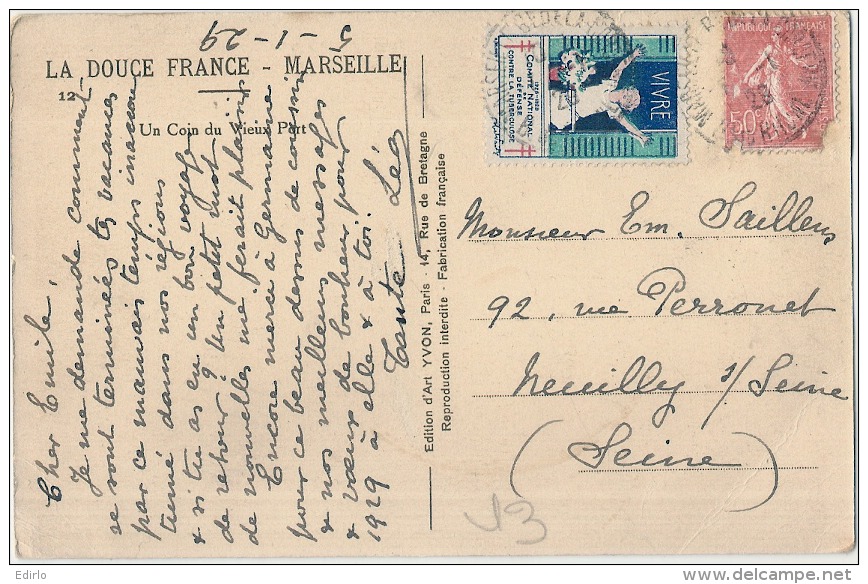 5-1-29
LA DOUCE FRANCE - MARSEILLE
12
Un Coin du Vieux Port
Cher Emile,
Je me demande comment
se sont terminées tes vacances
par ce mauvais temps inaccou
tumé dans nos régions
& si tu as eu un bon voyage
de retour ? Un petit mot
de nouvelles me ferait plaisir
Encore merci à Germaine
pour ce beau dessus de coussin
& nos meilleurs messages
& vœux de bonheur pour
1929 à elle & à toi.
Tante Léo
Edition d'Art YVON, Paris - 14, Rue de Bretagne
Reproduction interdite - Fabrication française
VIVRE
COMITÉ NATIONAL
DE
DÉFENSE
CONTRE LA TUBERCULOSE
REPUBLIQUE FRANÇAISE
50c
Monsieur Em. Saillens
92, rue Perronet
Neuilly s/ Seine
(Seine)
43
Edirlo
delcampe.net